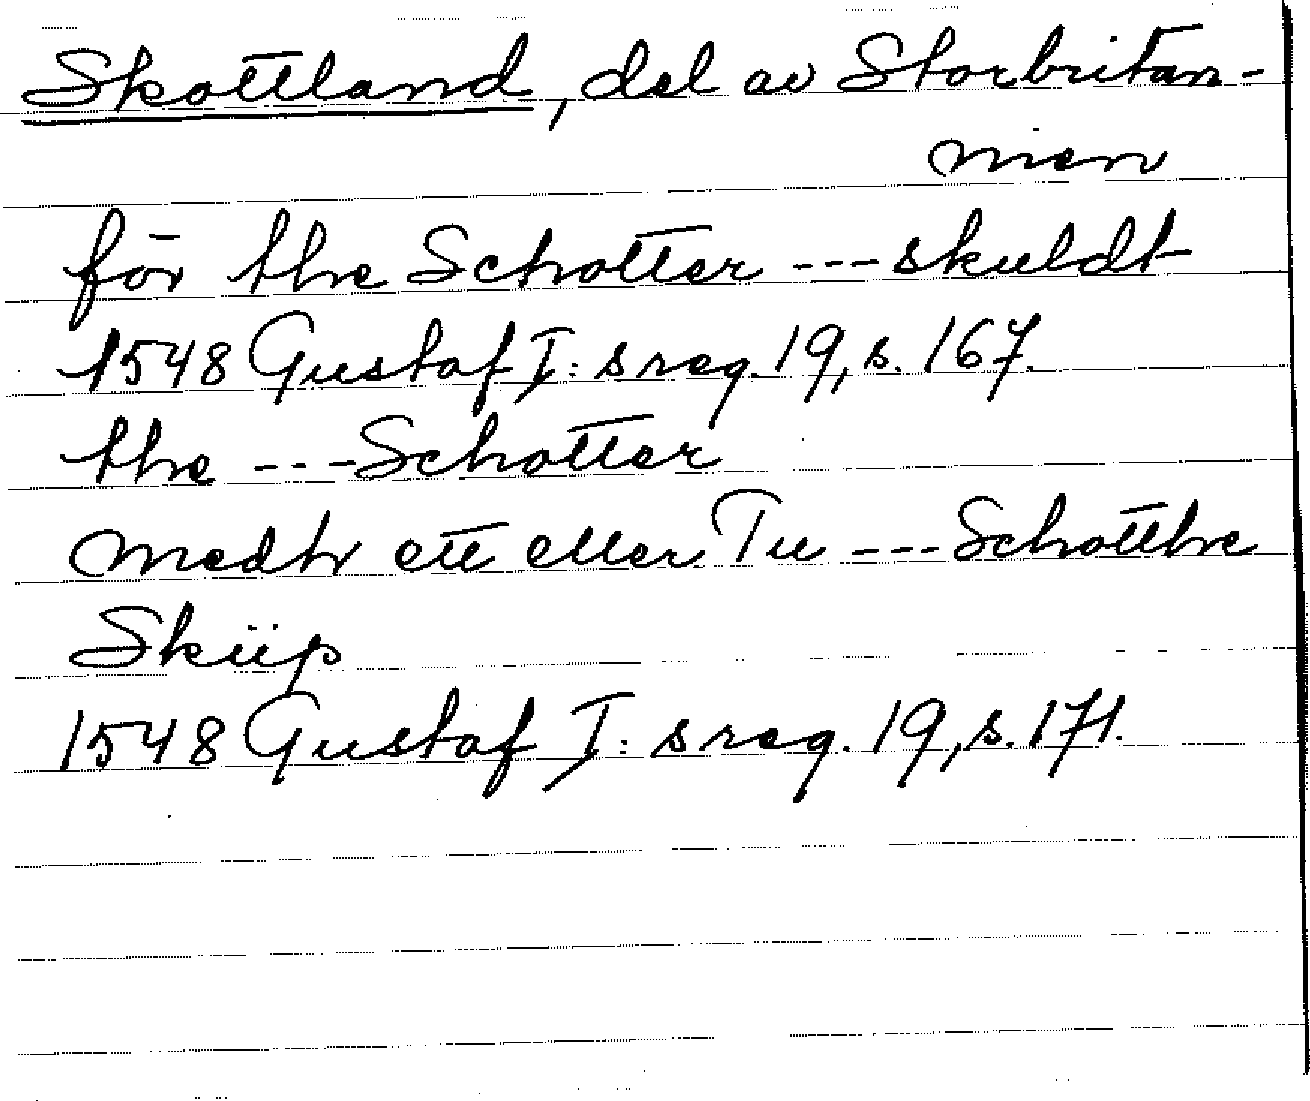 Skottland, del av Storbritan-
nien
för the Schotter --- skuldt
1548 Gustaf I:s reg. 19, s. 167.
the --- Schotter
medh ett eller Tu --- Schotthe
Skiip
1548 Gustaf I:s reg. 19, s. 171.